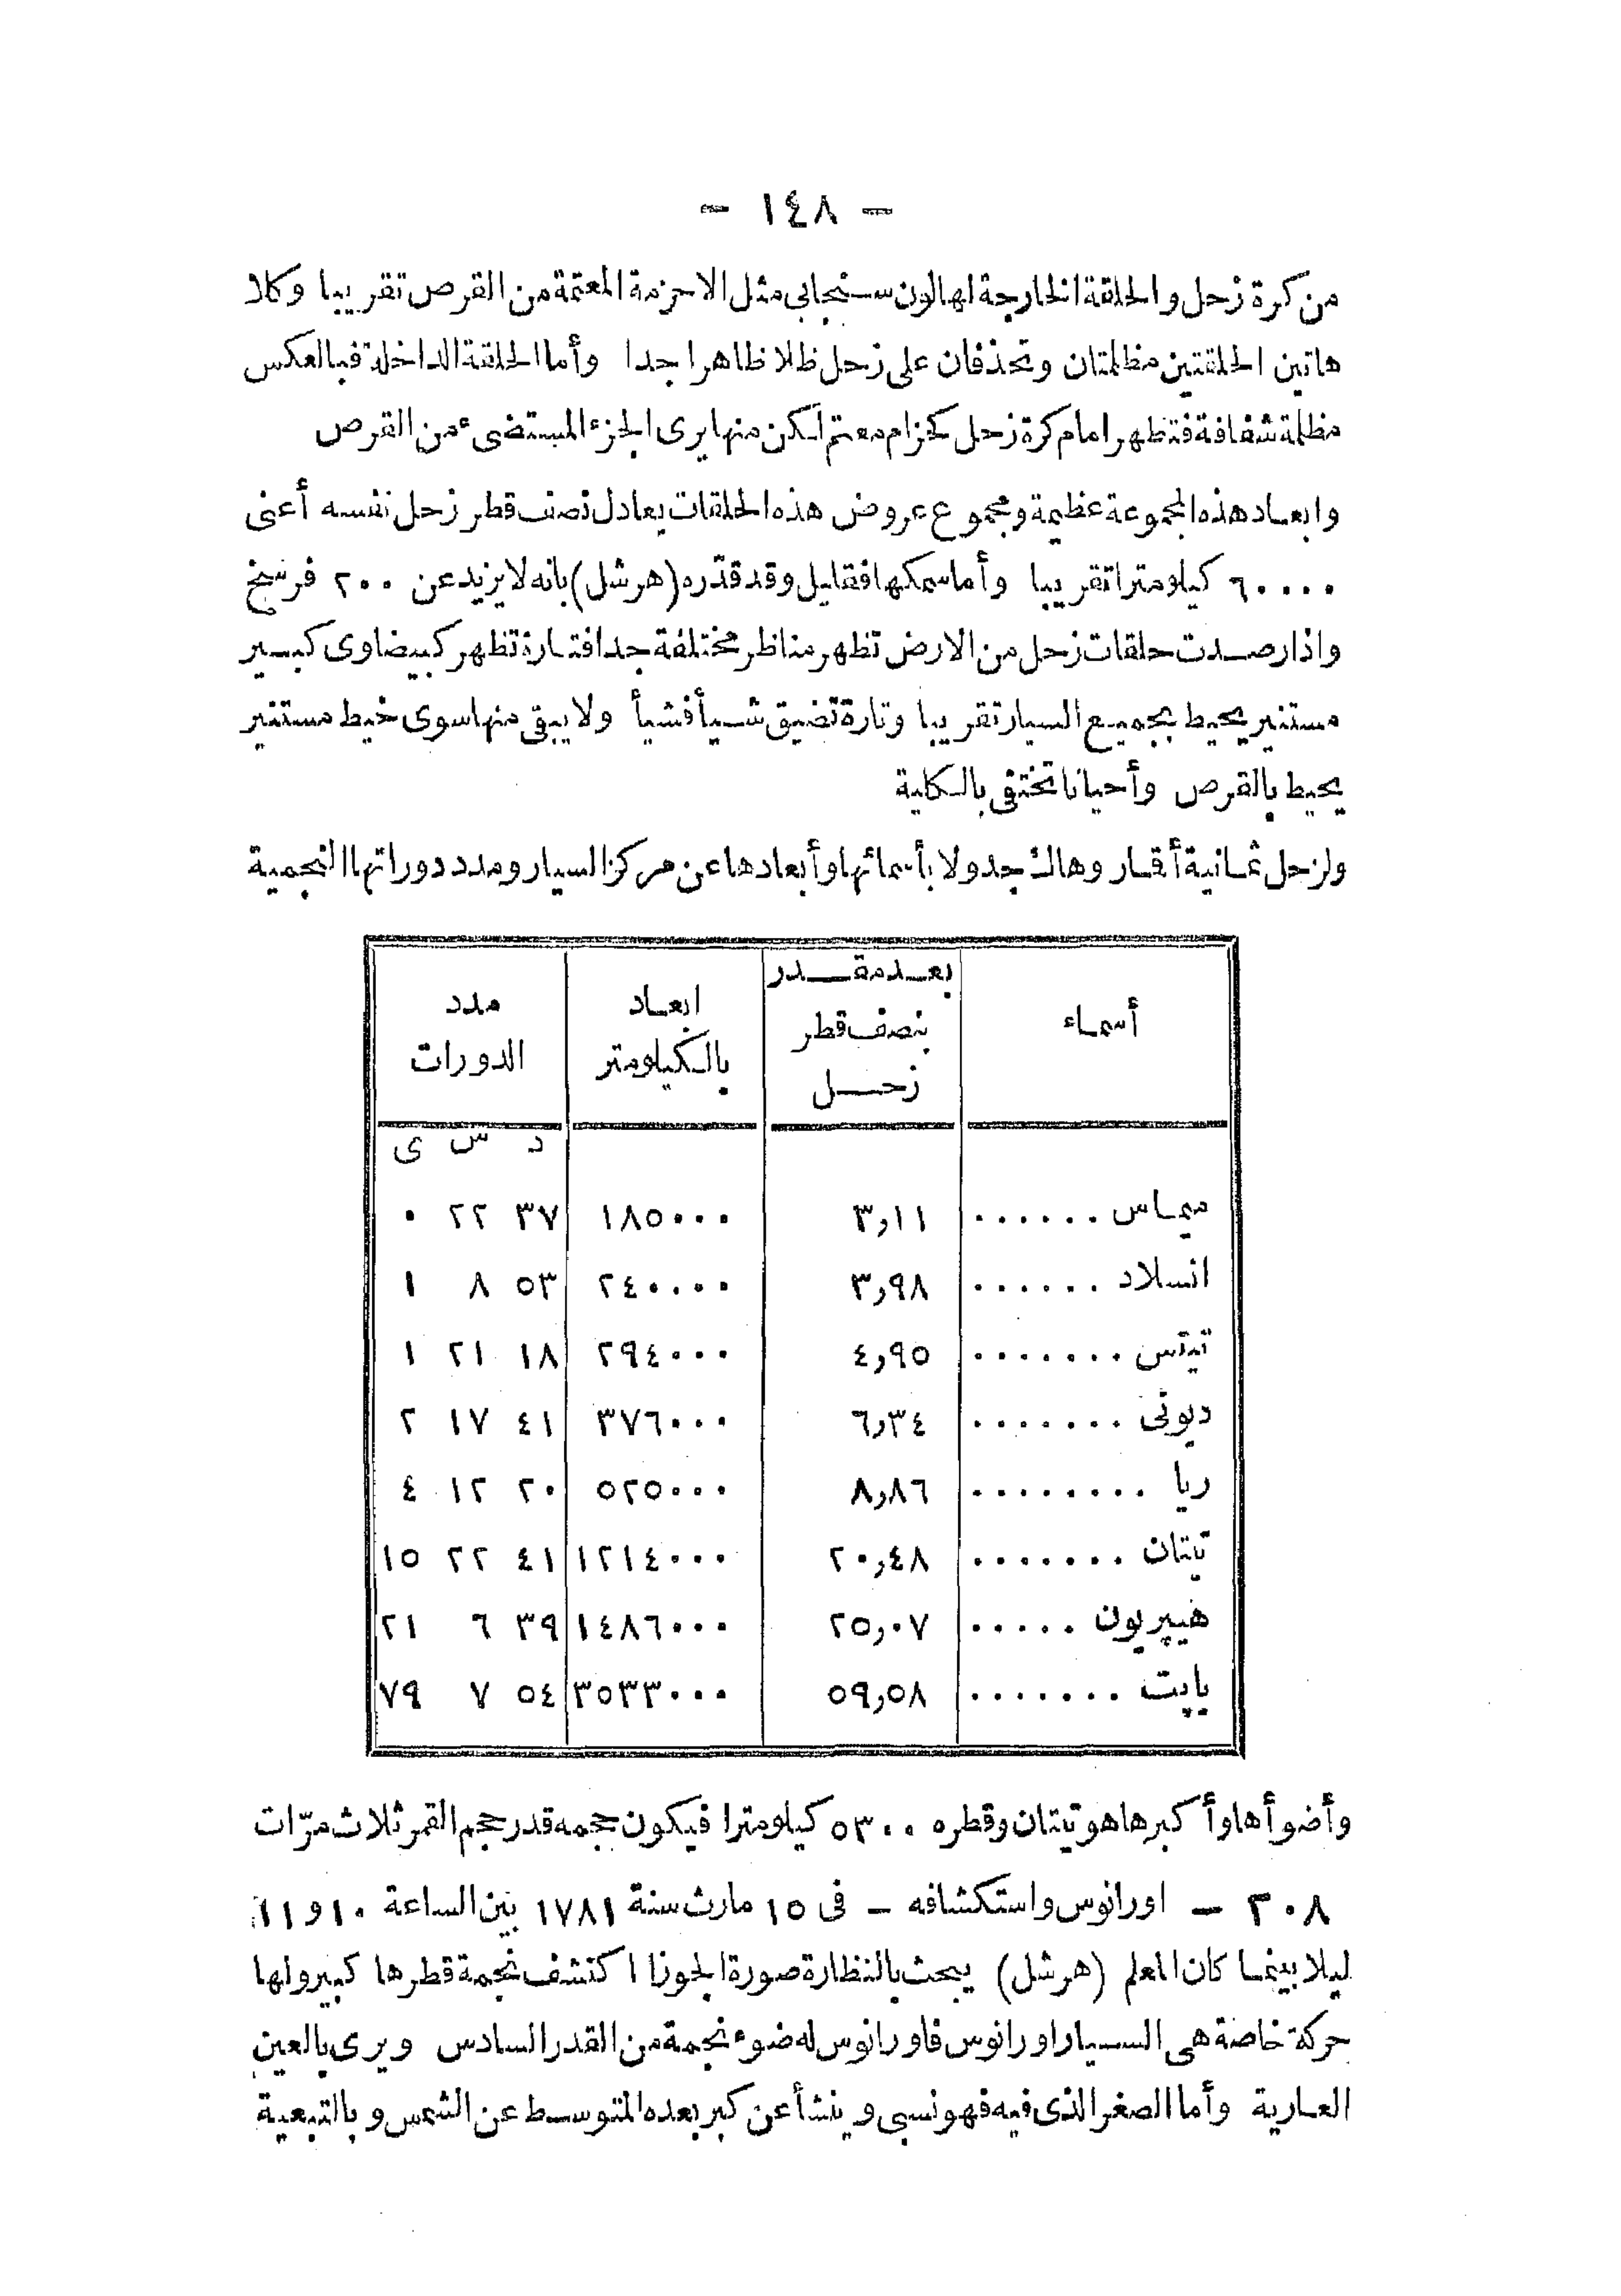 — ١٤٨ —
من كرة زحل والحلقة الخارجة لها لون سنجابى مثل الاحزمة المعتمة من القرص تقريبا وكلا
هاتين الحلقتين مظلمتان وتحذفان على زحل ظلا ظاهرا جدا وأما الحلقة الداخلة فبالعكس
مظلمة شفافة فتظهر امام كرة زحل كحزام معتم لكن منها يرى الجزء المستضىء من القرص
وابعاد هذه المجموعة عظيمة ومجموع عروض هذه الحلقات يعادل نصف قطر زحل نفسه أعنى
٦٠٠٠٠ كيلومترا تقريبا وأما سمكها فقليل وقد قدّره (هرشل) بانه لا يزيد عن ٢٠٠ فرسخ
واذا رصدت حلقات زحل من الارض تظهر مناظر مختلفة جدا فتارة تظهر كبيضاوى كبير
مستنير يحيط بجميع السيار تقريبا وتارة تضيق شيأ فشيأ ولا يبقى منها سوى خيط مستنير
يحيط بالقرص وأحيانا تختفى بالكلية
ولزحل ثمانية أقمار وهاك جدولا بأسمائها وأبعادها عن مركز السيار ومدد دوراتها النجمية
أسماء | بعد مقدر بنصف قطر زحل | ابعاد بالكيلومتر | مدد الدورات
د س ى
ميماس ...... ٣,١١ ١٨٥٠٠٠ ٣٧ ٢٢ ٠
انسلاد ...... ٣,٩٨ ٢٤٠٠٠٠ ٥٣ ٨ ١
تيتس ....... ٤,٩٥ ٢٩٤٠٠٠ ١٨ ٢١ ١
ديونى ....... ٦,٣٤ ٣٧٦٠٠٠ ٤١ ١٧ ٢
ريا ........ ٨,٨٦ ٥٢٥٠٠٠ ٢٠ ١٢ ٤
تيتان ....... ٢٠,٤٨ ١٢١٤٠٠٠ ٤١ ٢٢ ١٥
هيپريون ..... ٢٥,٠٧ ١٤٨٦٠٠٠ ٣٩ ٦ ٢١
ياپت ....... ٥٩,٥٨ ٣٥٣٣٠٠٠ ٥٤ ٧ ٧٩
وأضوأها وأكبرها هو تيتان وقطره ٥٣٠٠ كيلومترا فيكون حجمه قدر حجم القمر ثلاث مرّات
٣٠٨ — اورانوس واستكشافه — فى ١٥ مارث سنة ١٧٨١ بين الساعة ١٠ و ١١
ليلا بينما كان المعلم (هرشل) يبحث بالنظارة صورة الجوزا اكتشف نجمة قطرها كبير ولها
حركة خاصة هى السيار اورانوس فاورانوس له ضوء نجمة من القدر السادس ويرى بالعين
العارية وأما الصغر الذى فيه فهو نسبى وينشأ عن كبر بعده المتوسط عن الشمس وبالتبعية